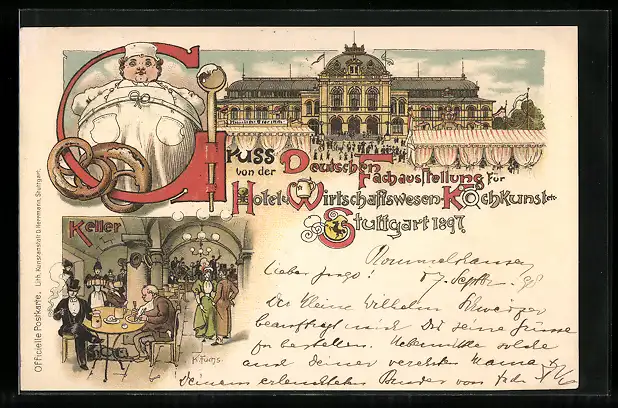 Gruss
von der Deutschen Fachausstellung für
Hotel u. Wirtschaftswesen Kochkunst etc.
Stuttgart 1897.
Keller
K. Fuchs.
Officielle Postkarte. Lith. Kunstanstalt G. Herrmann, Stuttgart.
Rommelshausen
Lieber Hugo!
Der kleine Wilhelm
beauftragt mich Dir seine Grüsse
zu bestellen. solche
auch Deiner verehrten Mama
Deinem Bruder von